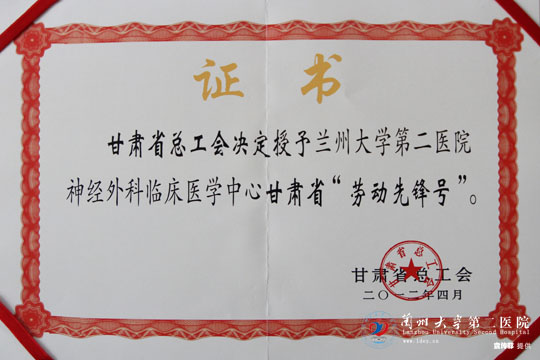 证 书
甘肃省总工会决定授予兰州大学第二医院
神经外科临床医学中心甘肃省“劳动先锋号”。
甘肃省总工会
甘肃省总工会
二〇一二年四月
兰州大学第二医院
Lanzhou University Second Hospital
www.ldey.cn
宣传部 提供